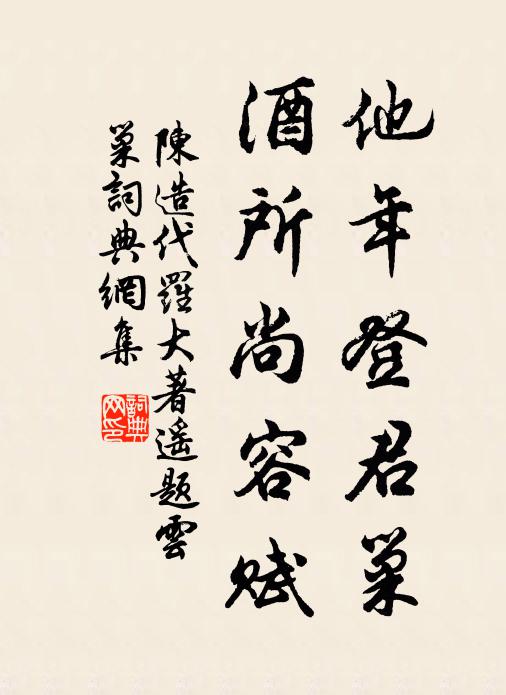 他年登君巢
酒所尚容赋
陳造代羅大著遥题雲
巢詞典網集
詞典
网印